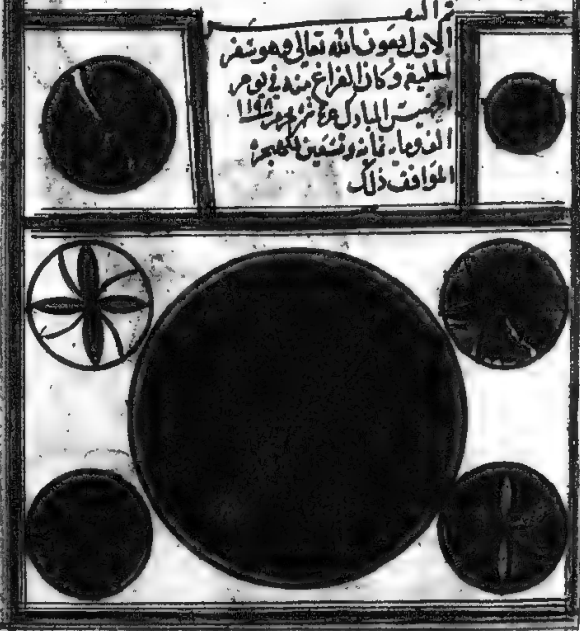 تم السفر
الاول بعون الله تعالى وهو سفر
الخليقة وكان الفراغ منه في يوم
الخميس المبارك شهر محرم ١١٩٨
الف وماية ثمانية وتسعين للهجرة
الموافق ذلك